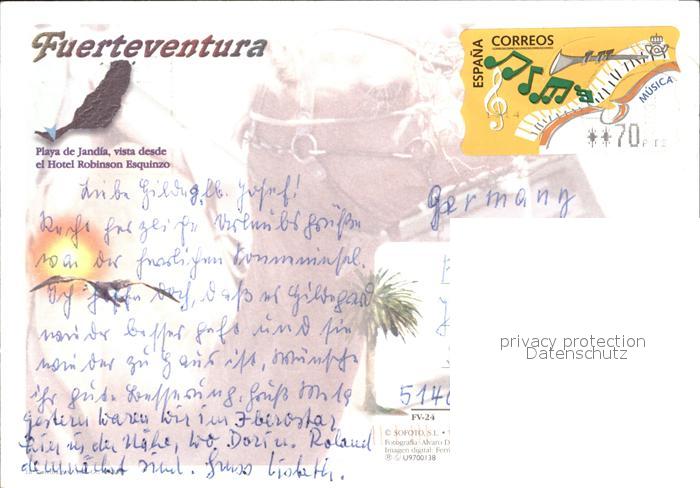 Fuerteventura
Playa de Jandía, vista desde
el Hotel Robinson Esquinzo
ESPAÑA
CORREOS
MÚSICA
**70 PTS
Liebe Hildeg, lb. Josef!
Recht herzliche Urlaubsgrüße
von der herrlichen Sonneninsel.
Ich hoffe doch, daß es Hildegard
wieder besser geht und sie
wieder zu Haus ist, Wünsche
ihr gute Besserung. Gruß
Gestern waren wir im Iberostar
hier in der Nähe, wo Doris. Roland
demnächst sind. Gruss Lisbeth.
Germany
514
privacy protection
Datenschutz
FV-24
© SOFOTO, S.L. •
Fotografía: Alvaro D
Imagen digital: Ferr
U9700138